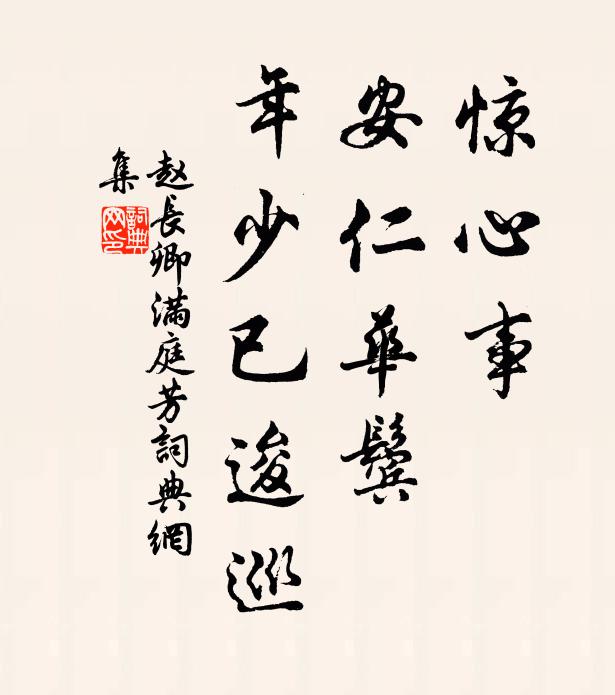 惊心事
安仁华鬓
年少已逡巡
赵長卿滿庭芳詞典網
集
詞典
网印